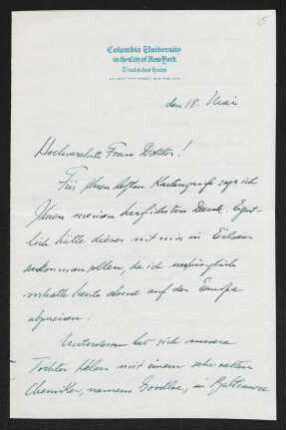 Columbia University
in the City of New York
Deutsches Haus
den 18. Mai
Hochverehrte Frau Doktor!
Für Ihren lieben Kartengruß sage ich
Ihnen meinen herzlichsten Dank. Eigent-
lich hätte dieser mit mir in
ankommen sollen, da ich ursprünglich
vorhatte heute abend auf der Europa
abzureisen.
Unterdessen hat sich unsere
Tochter Helen mit einem sehr netten
Chemiker, namens Goodloe, in Baltimore